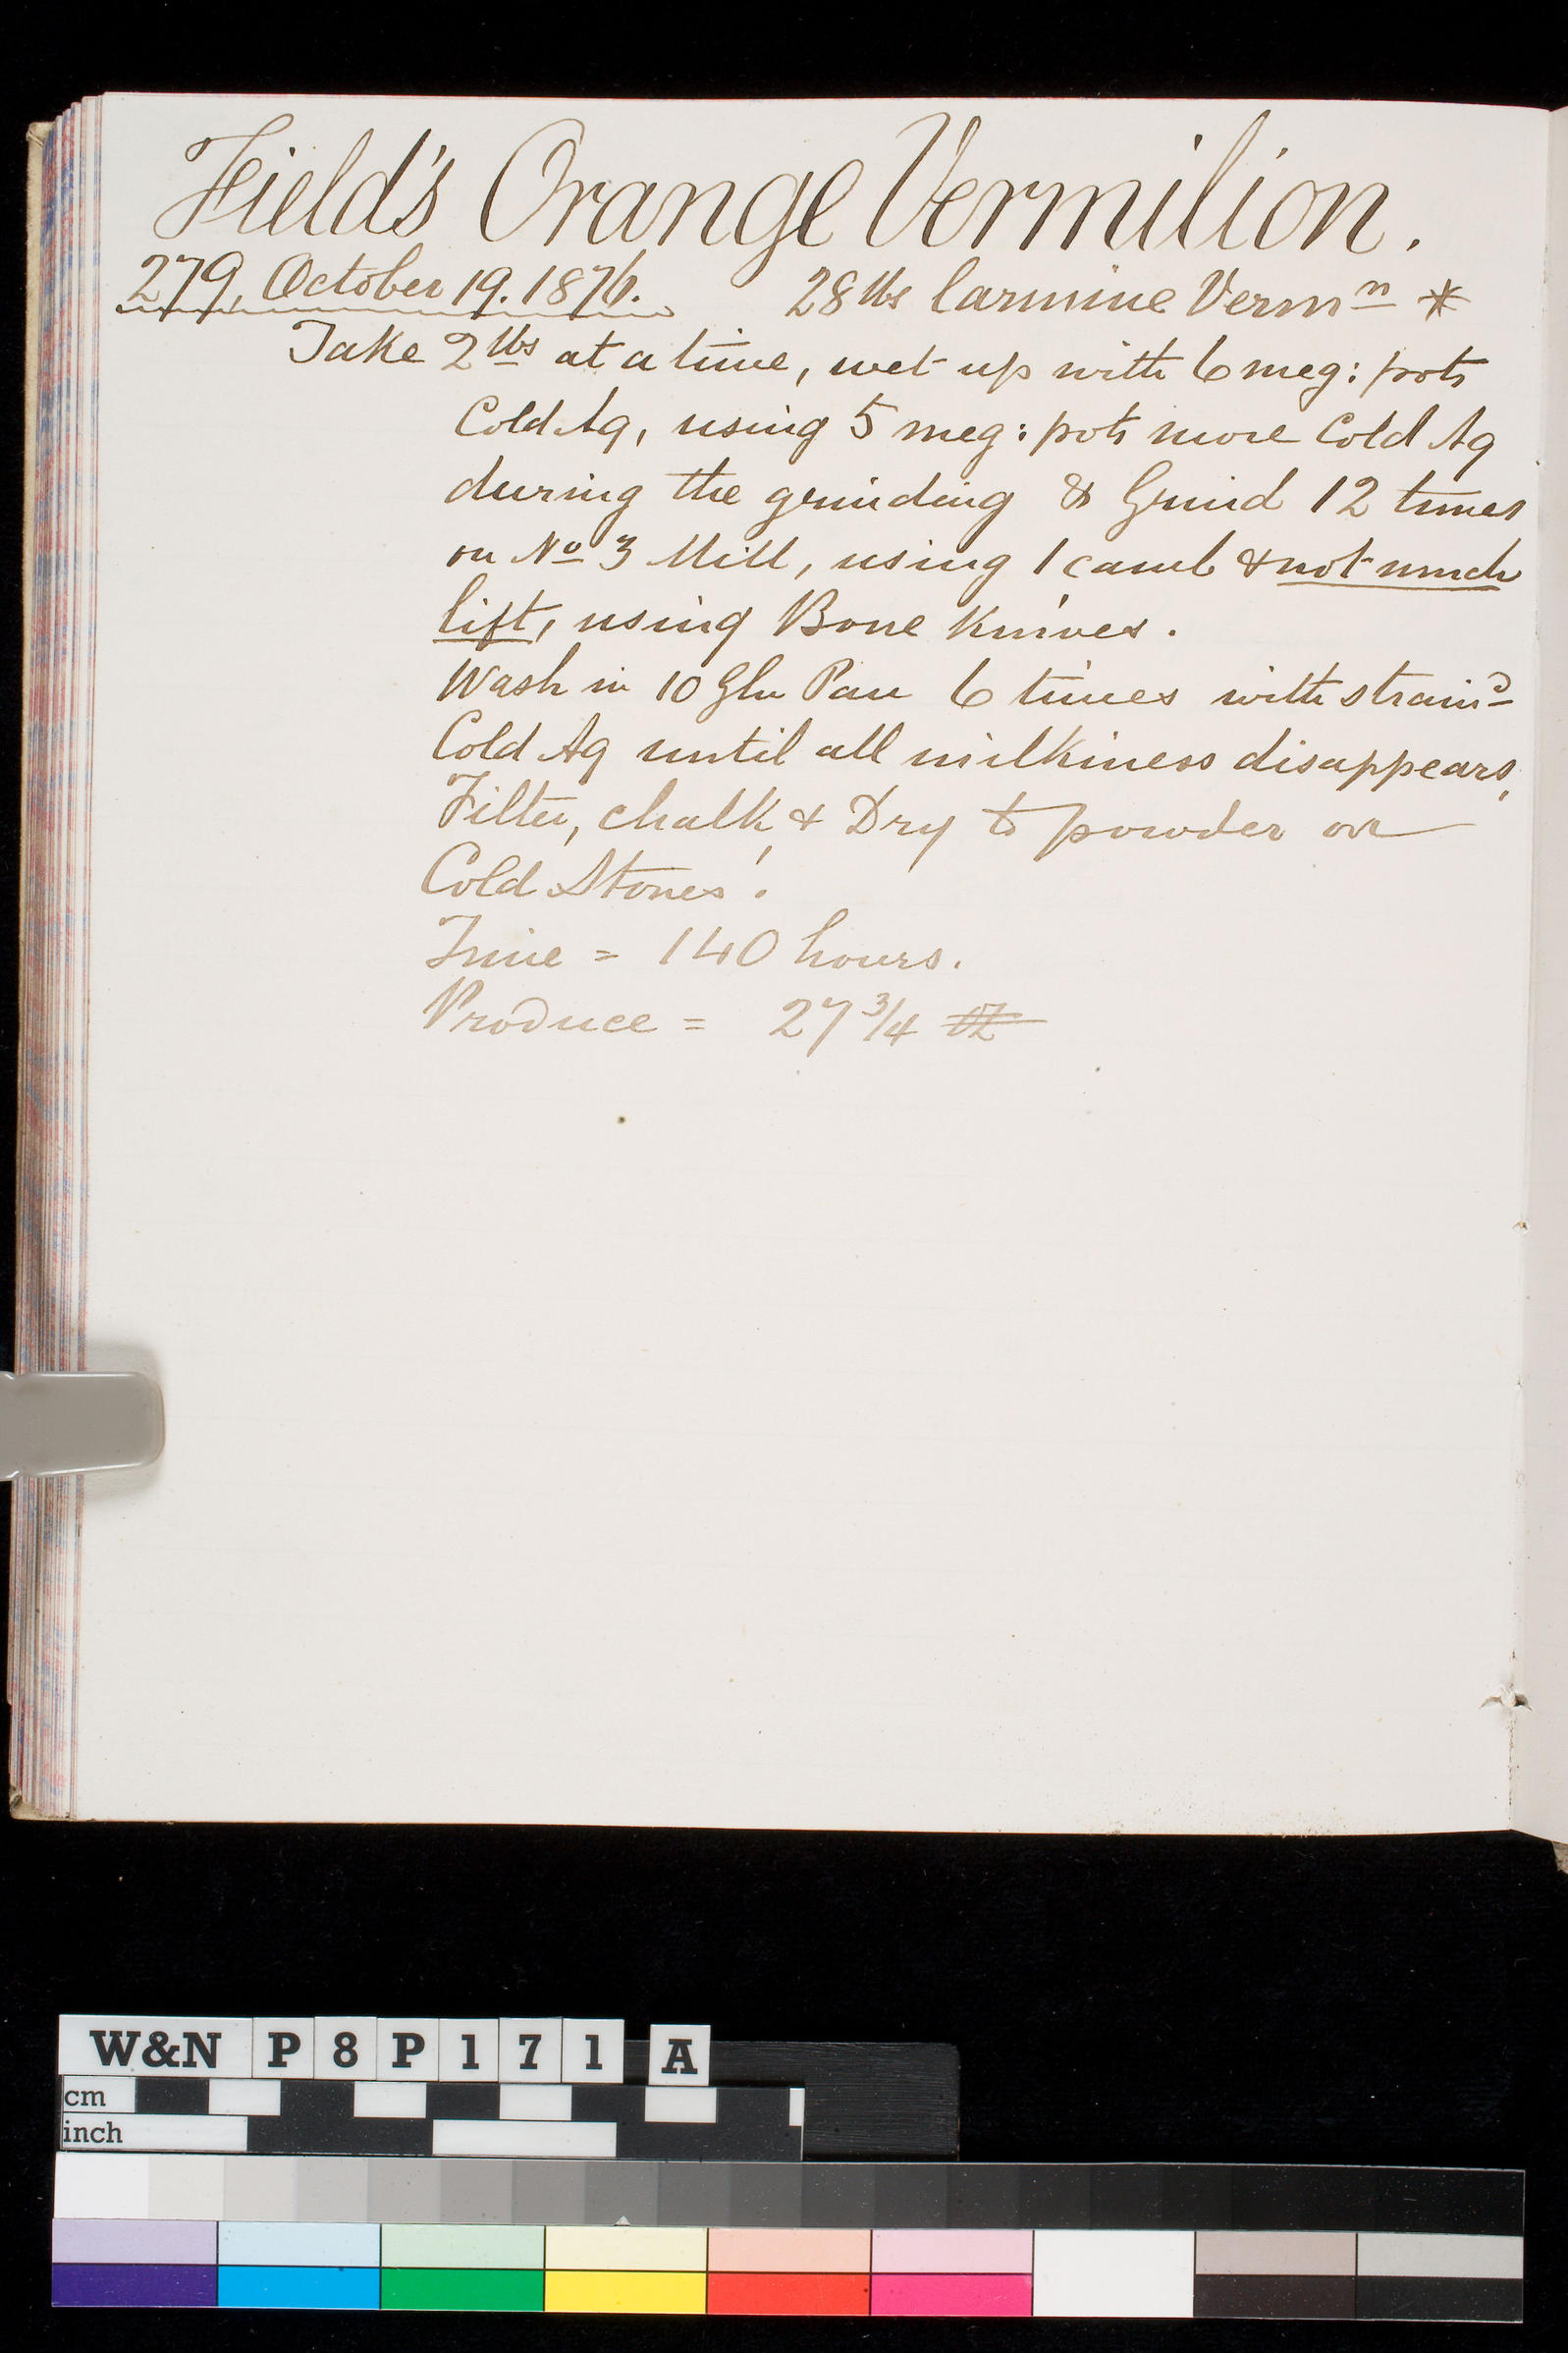 Field's Orange Vermilion.
279, October 19. 1876. 28 lbs Carmine Vermn *
Take 2 lbs at a time, wet up with 6 meg: pots
Cold Aq, using 5 meg: pots more Cold Aq
during the grinding & Grind 12 times
on No 3 Mill, using 1 camb & not much
lift, using Bone Knives.
Wash in 10 Gln Pan 6 times with straind
Cold Aq until all milkiness disappears,
Filter, chalk, & Dry to powder on
Cold Stones!
Time = 140 hours.
Produce = 27 3/4
W&N P8P171 A
cm
inch